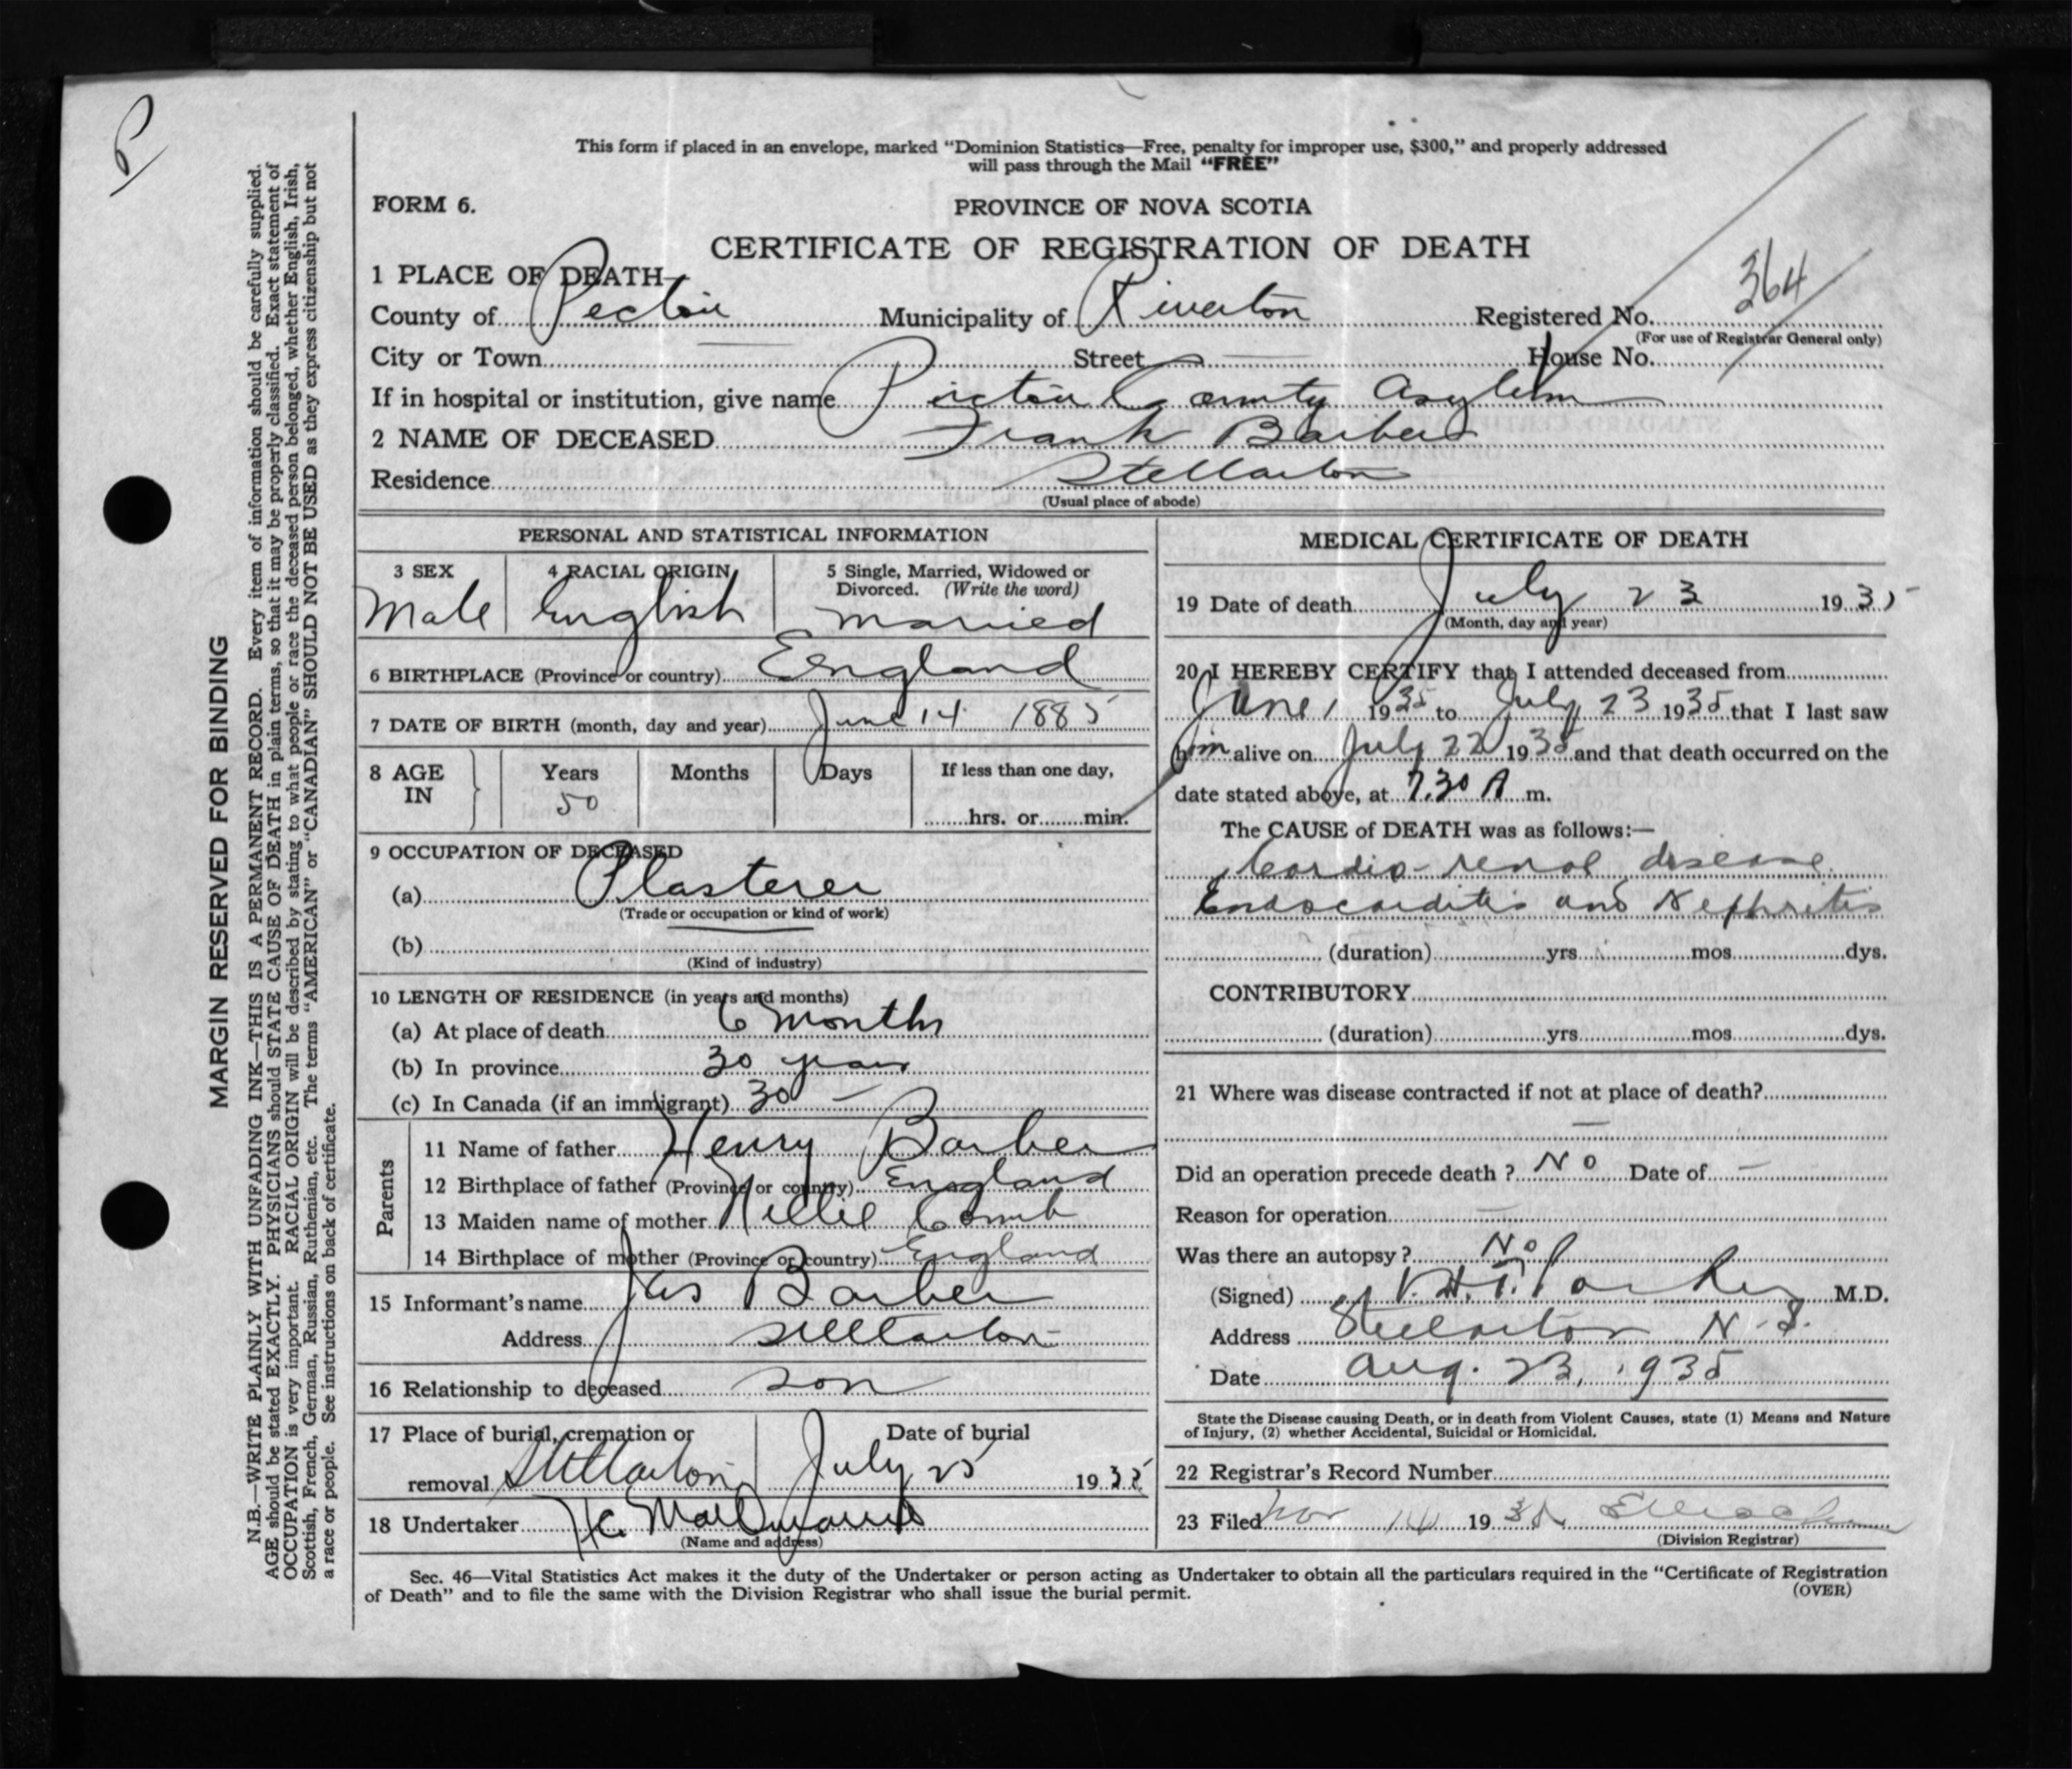 This form if placed in an envelope, marked "Dominion Statistics—Free, penalty for improper use, $300," and properly addressed
will pass through the Mail "FREE"
FORM 6.
PROVINCE OF NOVA SCOTIA
CERTIFICATE OF REGISTRATION OF DEATH
364
1 PLACE OF DEATH—
County of Pictou Municipality of Riverton Registered No.
(For use of Registrar General only)
City or Town Street House No.
If in hospital or institution, give name Pictou County Asylum
2 NAME OF DECEASED Frank Barber
Residence Stellarton
(Usual place of abode)
PERSONAL AND STATISTICAL INFORMATION
3 SEX 4 RACIAL ORIGIN 5 Single, Married, Widowed or
Divorced. (Write the word)
Male English Married
6 BIRTHPLACE (Province or country) England
7 DATE OF BIRTH (month, day and year) June 14 1885
8 AGE IN Years Months Days If less than one day,
50
hrs. or min.
9 OCCUPATION OF DECEASED
(a) Plasterer
(Trade or occupation or kind of work)
(b)
(Kind of industry)
10 LENGTH OF RESIDENCE (in years and months)
(a) At place of death 6 months
(b) In province 30 years
(c) In Canada (if an immigrant) 30 —
Parents
11 Name of father Henry Barber
12 Birthplace of father (Province or country) England
13 Maiden name of mother Nellie Comb
14 Birthplace of mother (Province or country) England
15 Informant's name Jas Barber
Address Stellarton
16 Relationship to deceased son
17 Place of burial, cremation or Date of burial
removal Stellarton July 25 1935
18 Undertaker
(Name and address)
MEDICAL CERTIFICATE OF DEATH
19 Date of death July 23 1935
(Month, day and year)
20 I HEREBY CERTIFY that I attended deceased from
June 1 1935 to July 23 1935 that I last saw
him alive on July 22 1935 and that death occurred on the
date stated above, at 7.30 A m.
The CAUSE of DEATH was as follows:—
Cardio-renal disease
Endocarditis and Nephritis
(duration) yrs. mos. dys.
CONTRIBUTORY
(duration) yrs. mos. dys.
21 Where was disease contracted if not at place of death?
—
Did an operation precede death ? No Date of —
Reason for operation —
Was there an autopsy ? No
(Signed) M.D.
Address Stellarton N.S.
Date Aug. 23, 1935
State the Disease causing Death, or in death from Violent Causes, state (1) Means and Nature
of Injury, (2) whether Accidental, Suicidal or Homicidal.
22 Registrar's Record Number
23 Filed Nov 14 1935
(Division Registrar)
Sec. 46—Vital Statistics Act makes it the duty of the Undertaker or person acting as Undertaker to obtain all the particulars required in the "Certificate of Registration
of Death" and to file the same with the Division Registrar who shall issue the burial permit.
(OVER)
MARGIN RESERVED FOR BINDING
N.B.—WRITE PLAINLY WITH UNFADING INK—THIS IS A PERMANENT RECORD. Every item of information should be carefully supplied.
AGE should be stated EXACTLY. PHYSICIANS should STATE CAUSE OF DEATH in plain terms, so that it may be properly classified. Exact statement of
OCCUPATION is very important. RACIAL ORIGIN will be described by stating to what people or race the deceased person belonged, whether English, Irish,
Scottish, French, German, Russian, Ruthenian, etc. The terms "AMERICAN" or "CANADIAN" SHOULD NOT BE USED as they express citizenship but not
a race or people. See instructions on back of certificate.